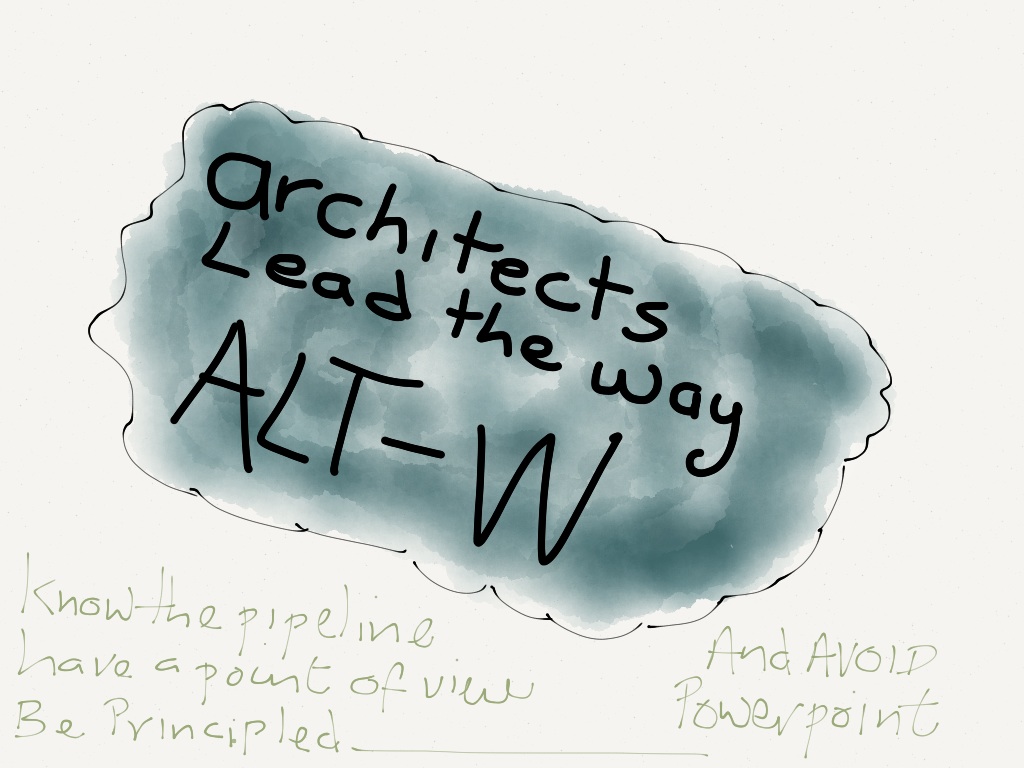 architects
Lead the way
ALT-W
Know the pipeline
have a point of view
Be Principled
And AVOID
Powerpoint